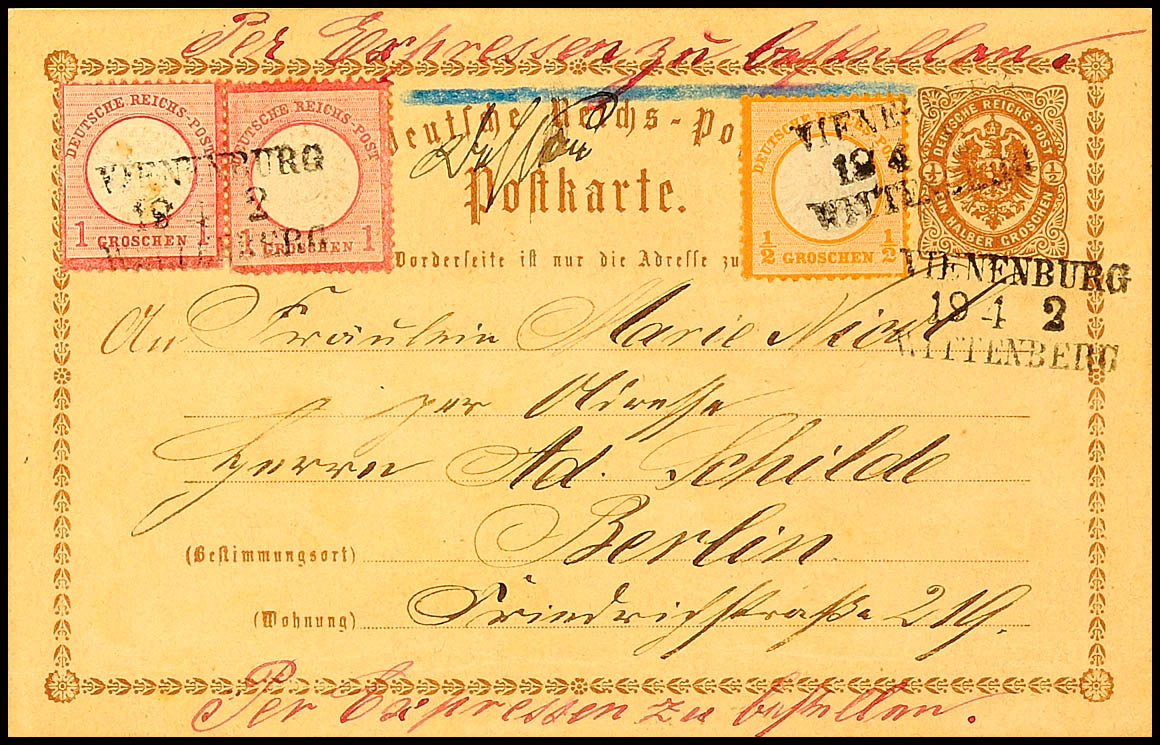 Per Expressen zu bestellen.
DEUTSCHE REICHS-POST
1 GROSCHEN 1
DEUTSCHE REICHS-POST
1 GROSCHEN 1
VIENENBURG
18 4 2
WITTENBERG
Deutsche Reichs-Po
Postkarte.
Vorderseite ist nur die Adresse zu
DEUTSCHE REICHS-POST
½ GROSCHEN ½
VIENE
19 4
WITTENBERG
DEUTSCHE REICHS-POST
½ ½
EIN HALBER GROSCHEN
VIENENBURG
19 4 2
WITTENBERG
An Fräulein Marie Nicol
per Adresse
Herrn Ad. Schilde
(Bestimmungsort) Berlin
(Wohnung) Friedrichstraße 219.
Per Expressen zu bestellen.